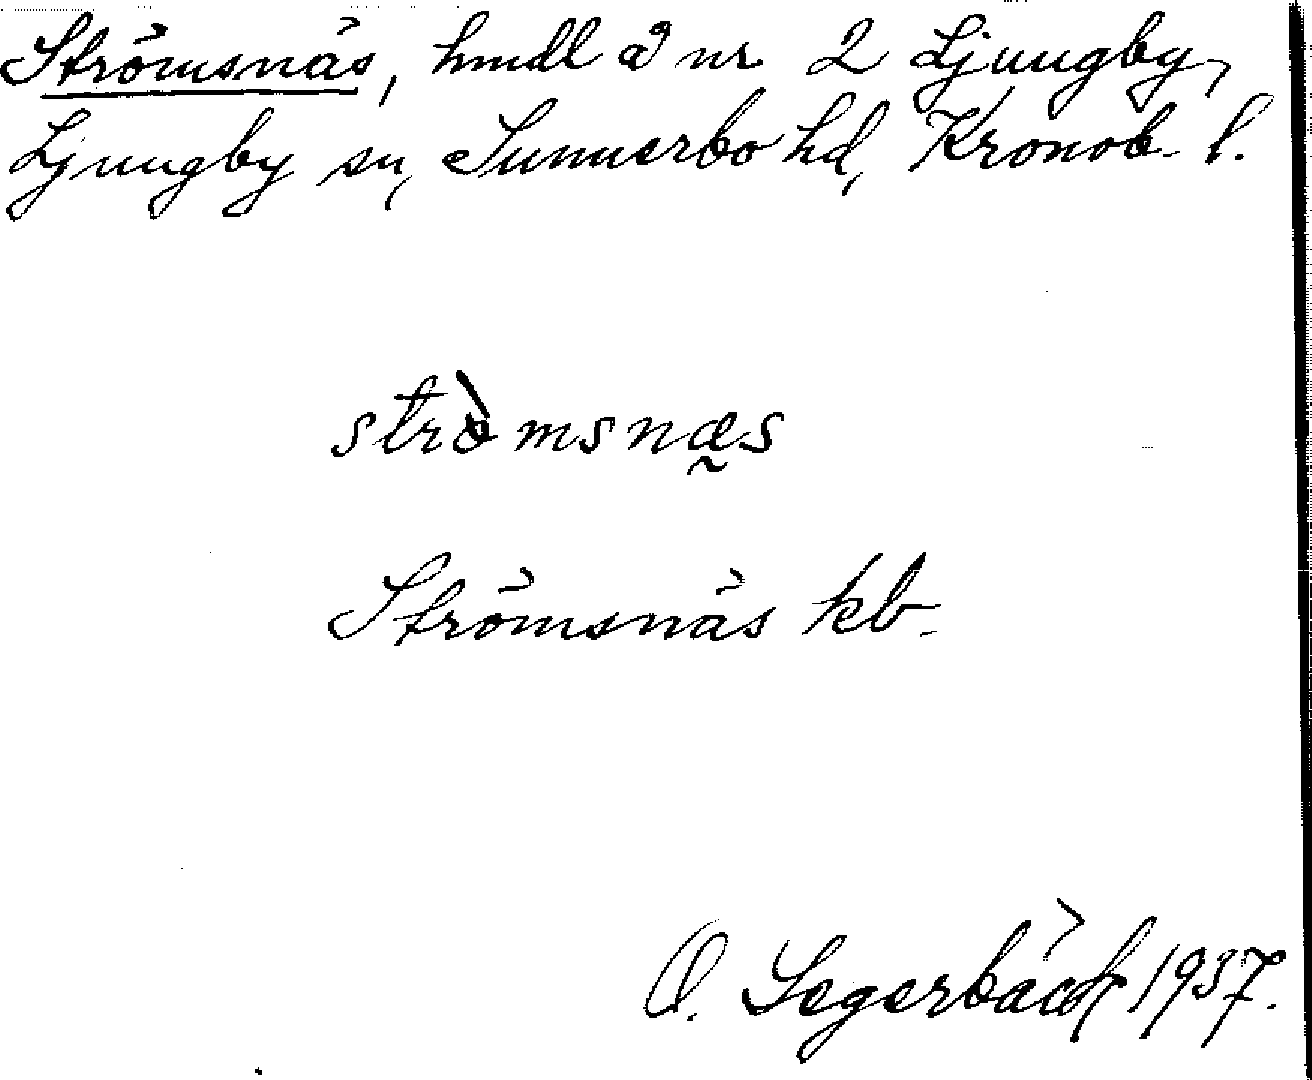 Strömsnäs, hmdl å nr 2 Ljungby,
Ljungby sn, Sunnerbo hd, Kronob. l.
stròmsnæ̰s
Strömsnäs kb.
O. Segerbäck 1937.